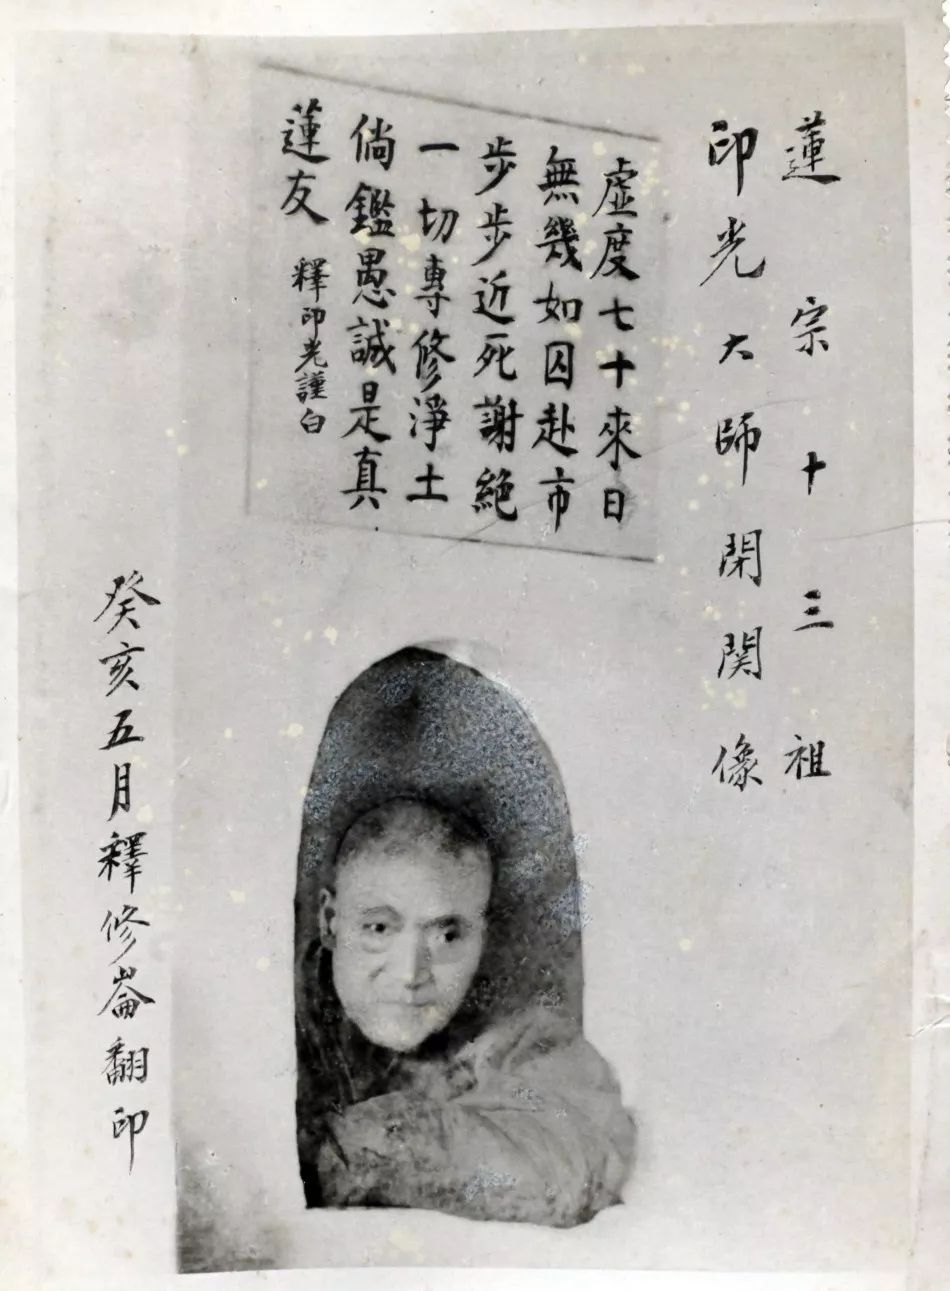 蓮宗十三祖
印光大師閉関像
虛度七十來日
無幾如囚赴市
步步近死謝絕
一切專修淨土
倘鑑愚誠是真
蓮友
釋印光謹白
癸亥五月釋修崙翻印